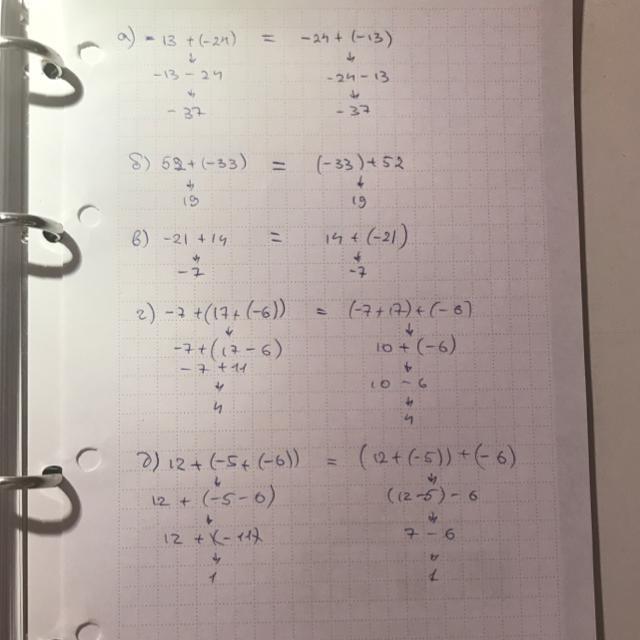 а) -13 + (-24) = -24 + (-13)
↓ ↓
-13 - 24 -24 - 13
↓ ↓
-37 -37
б) 52 + (-33) = (-33) + 52
↓ ↓
19 19
в) -21 + 14 = 14 + (-21)
↓ ↓
-7 -7
г) -7 + (17 + (-6)) = (-7 + 17) + (-6)
↓ ↓
-7 + (17 - 6) 10 + (-6)
-7 + 11 ↓
↓ 10 - 6
4 ↓
4
д) 12 + (-5 + (-6)) = (12 + (-5)) + (-6)
↓ ↓
12 + (-5 - 6) (12 - 5) - 6
↓ ↓
12 - 11 7 - 6
↓ ↓
1 1